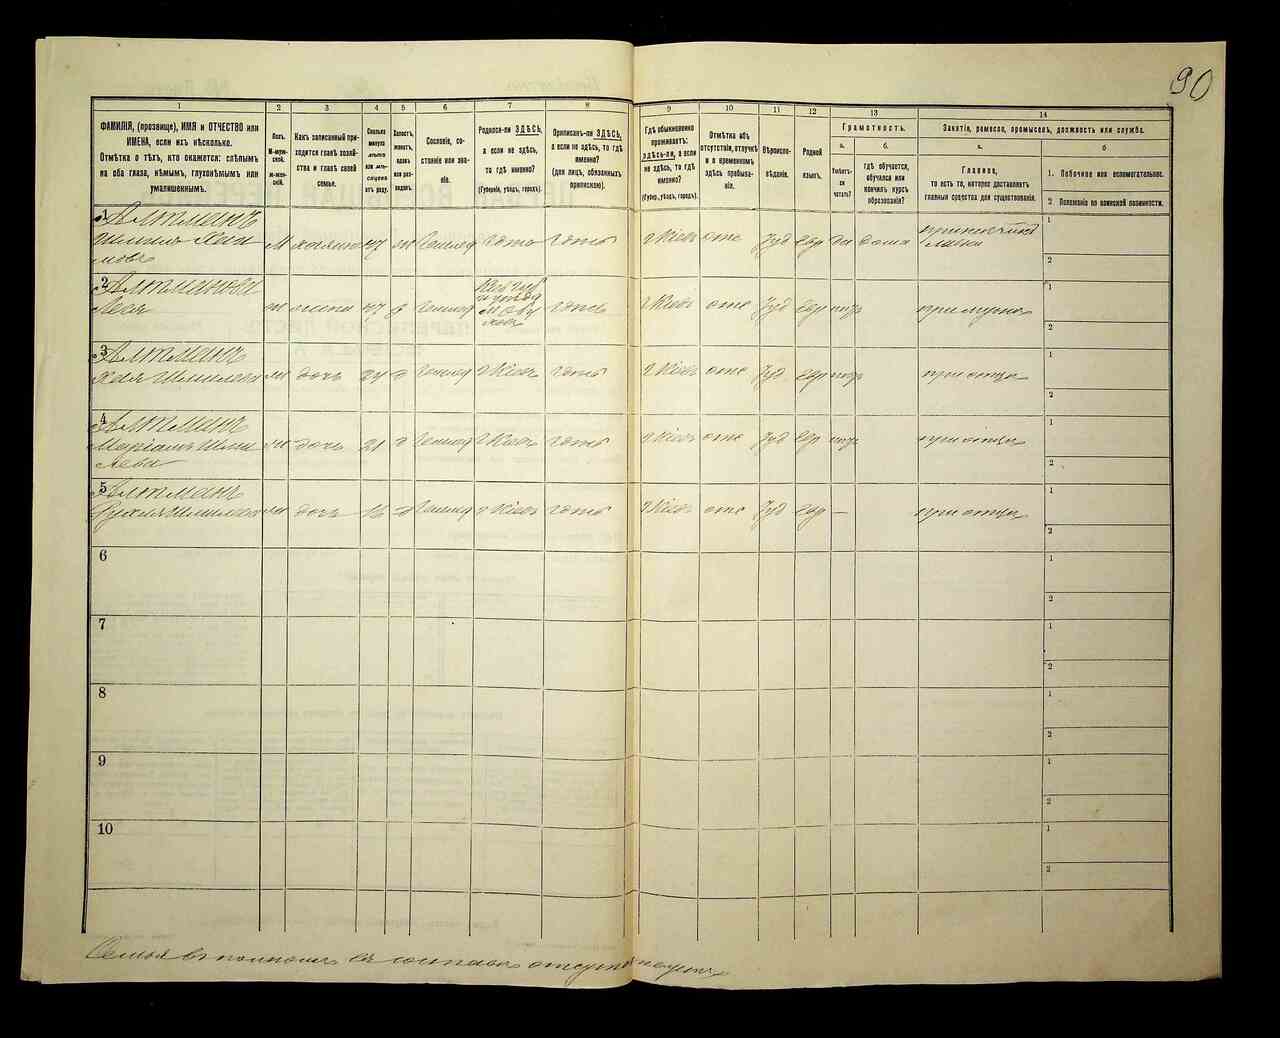 90
1 2 3 4 5 6 7 8 9 10 11 12 13 14
ФАМИЛІЯ, (прозвище), ИМЯ и ОТЧЕСТВО или
ИМЕНА, если ихъ нѣсколько.
Отмѣтка о тѣхъ, кто окажется: слѣпымъ
на оба глаза, нѣмымъ, глухонѣмымъ или
умалишеннымъ.
Полъ.
М-муж-
ской.
ж-жен-
скій.
Какъ записанный при-
ходится главѣ хозяй-
ства и главѣ своей
семьи.
Сколько
минуло
лѣтъ
или мѣ-
сяцевъ
отъ роду.
Холостъ,
женатъ,
вдовъ
или раз-
веденъ.
Сословіе, со-
стояніе или зва-
ніе.
Родился-ли ЗДѢСЬ,
а если не здѣсь,
то гдѣ именно?
(Губернія, уѣздъ, городъ).
Приписанъ-ли ЗДѢСЬ,
а если не здѣсь, то гдѣ
именно?
(для лицъ, обязанныхъ
припискою).
Гдѣ обыкновенно
проживаетъ:
ЗДѢСЬ-ли, а если
не здѣсь, то гдѣ
именно?
(Губер., уѣздъ, городъ).
Отмѣтка объ
отсутствіи, отлучкѣ
и о временномъ
здѣсь пребыва-
ніи.
Вѣроиспо-
вѣданіе.
Родной
языкъ.
Грамотность.
а.
Умѣетъ-
ли
читать?
б.
гдѣ обучается,
обучался или
кончилъ курсъ
образованія?
Занятіе, ремесло, промыселъ, должность или служба.
а.
Главное,
то есть то, которое доставляетъ
главныя средства для существованія.
б
1. Побочное или вспомогательное.
2 Положеніе по воинской повинности.
1
Алтманъ
Шмиля Хаи
мовъ
М хозяинъ 47 ж г Кіевъ отс Іуд евр да дома
1
2
2
Алтманова
Лея
ж жена 47 г Кіевъ отс Іуд евр
1
2
3
Алтманъ
Хая Шмилева ж дочь 24 г Кіевъ г Кіевъ отс Іуд евр при отцѣ
1
2
4
Алтманъ
Маріамъ Шми
лева
ж дочь 21 г Кіевъ г Кіевъ отс Іуд евр при отцѣ
1
2
5
Алтманъ
Рухля Шмилева ж дочь 16 г Кіевъ г Кіевъ отс Іуд евр — при отцѣ
1
2
6
1
2
7
1
2
8
1
2
9
1
2
10
1
2
Семья въ полномъ ея составѣ отсутствуетъ